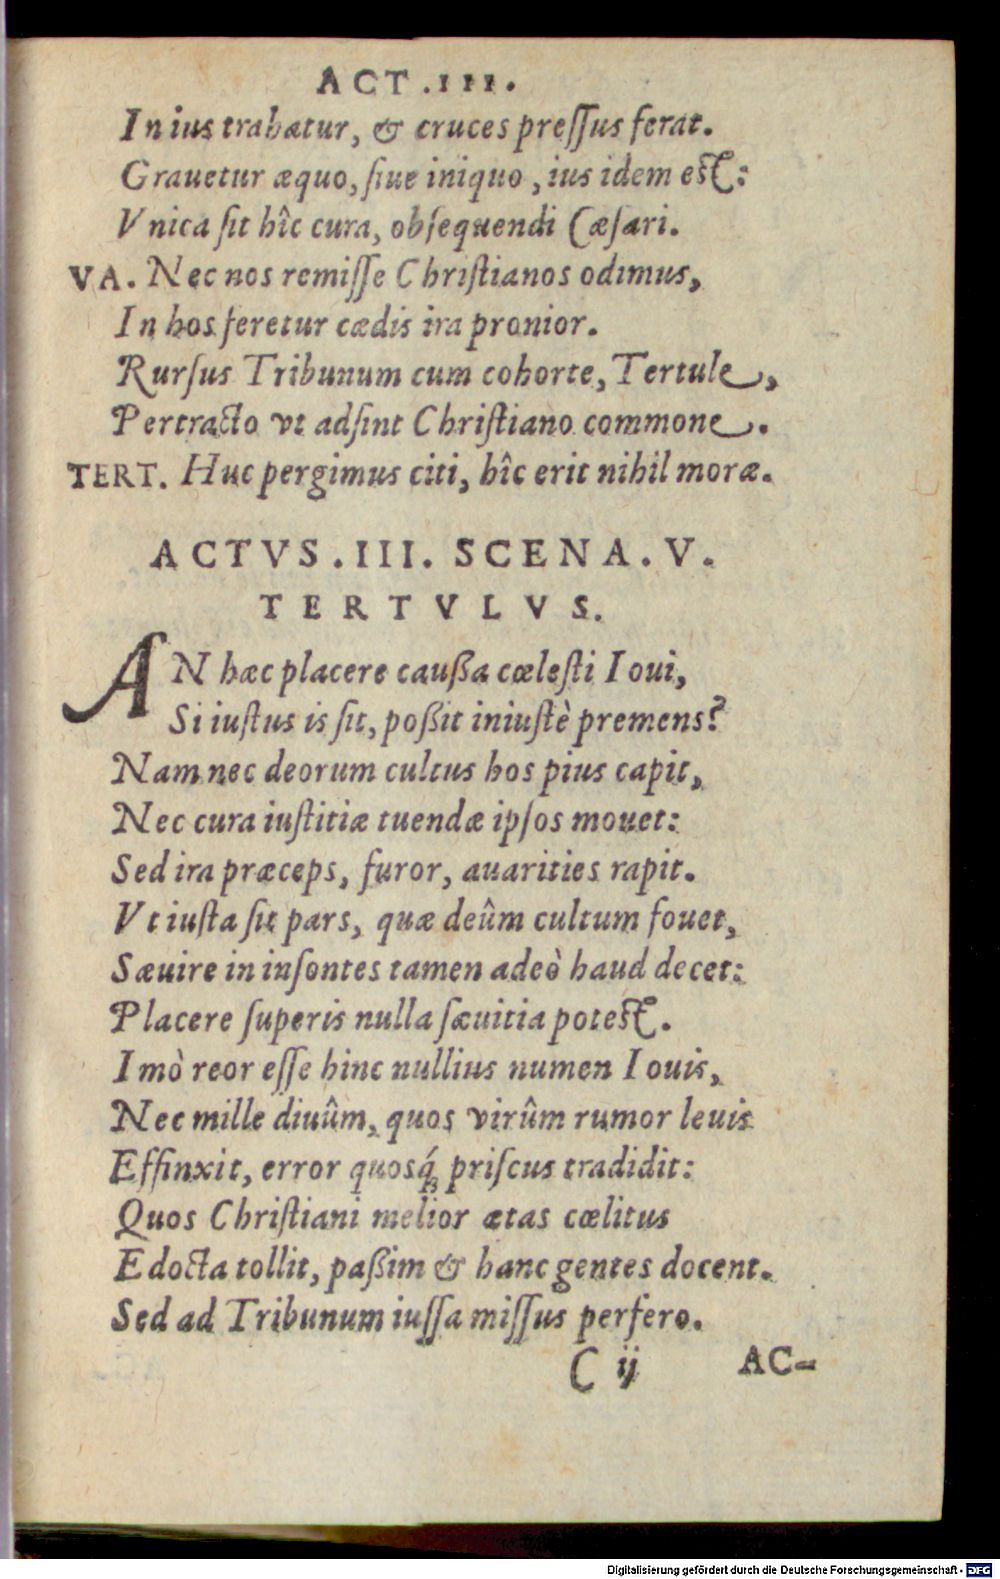 ACT .III.
In ius trahatur, & cruces preſſus ferat.
Grauetur æquo, ſiue iniquo, ius idem est:
Vnica ſit hîc cura, obſequendi Cæſari.
VA. Nec nos remiſſe Chriſtianos odimus,
In hos feretur cædis ira pronior.
Rurſus Tribunum cum cohorte, Tertule,
Pertracto vt adſint Chriſtiano commone.
TERT. Huc pergimus citi, hîc erit nihil moræ.
ACTVS .III. SCENA .V.
TERTVLVS.
AN hæc placere caußa cœleſti Ioui,
Si iuſtus is ſit, poßit iniuſtè premens?
Nam nec deorum cultus hos pius capit,
Nec cura iuſtitiæ tuendæ ipſos mouet:
Sed ira præceps, furor, auarities rapit.
Vt iuſta ſit pars, quæ deûm cultum fouet,
Sæuire in inſontes tamen adeò haud decet:
Placere ſuperis nulla ſæuitia potest.
Imò reor eſſe hinc nullius numen Iouis,
Nec mille diuûm, quos virûm rumor leuis
Effinxit, error quosq́; priſcus tradidit:
Quos Chriſtiani melior ætas cœlitus
Edocta tollit, paßim & hanc gentes docent.
Sed ad Tribunum iuſſa miſſus perfero.
C ij AC=
Digitalisierung gefördert durch die Deutsche Forschungsgemeinschaft - DFG